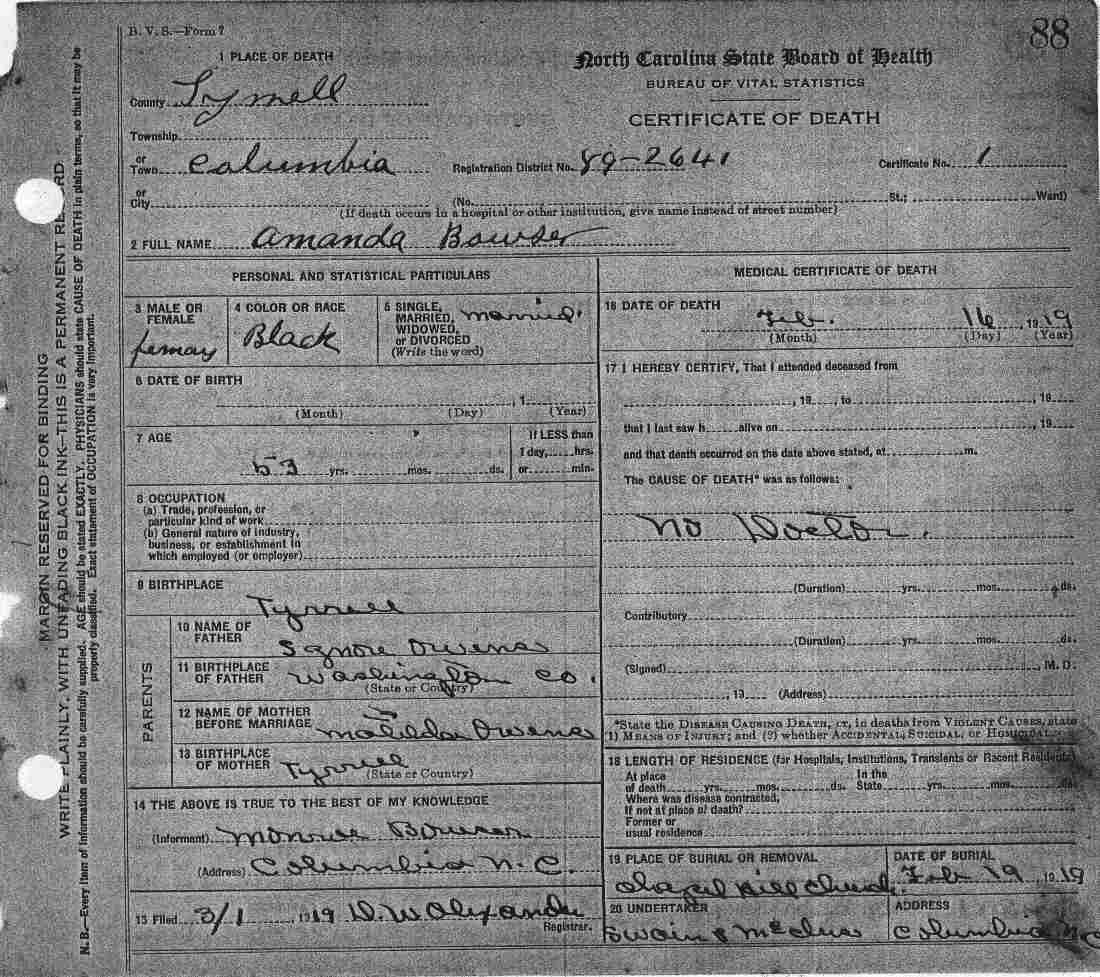 B. V. S.—Form 7
88
1 PLACE OF DEATH
North Carolina State Board of Health
BUREAU OF VITAL STATISTICS
CERTIFICATE OF DEATH
County Tyrrell
Township
or
Town Columbia Registration District No. 89-2641 Certificate No. 1
or
City (No. St.; Ward)
(If death occurs in a hospital or other institution, give name instead of street number)
2 FULL NAME Amanda Bowser
PERSONAL AND STATISTICAL PARTICULARS
3 MALE OR FEMALE
4 COLOR OR RACE
Black
5 SINGLE, MARRIED, WIDOWED, or DIVORCED
(Write the word)
married
6 DATE OF BIRTH
, 1
(Month) (Day) (Year)
7 AGE
53 yrs. mos. ds.
If LESS than
1 day, hrs.
or min.
8 OCCUPATION
(a) Trade, profession, or
particular kind of work
(b) General nature of industry,
business, or establishment in
which employed (or employer)
9 BIRTHPLACE
Tyrrell
PARENTS
10 NAME OF FATHER
Owens
11 BIRTHPLACE OF FATHER
Washington Co.
(State or Country)
12 NAME OF MOTHER BEFORE MARRIAGE
Matilda Owens
13 BIRTHPLACE OF MOTHER
Tyrrell
(State or Country)
14 THE ABOVE IS TRUE TO THE BEST OF MY KNOWLEDGE
(Informant) Monroe Bowser
(Address) Columbia N.C.
15 Filed 3/1 1919 D. W. Alexander
Registrar.
MEDICAL CERTIFICATE OF DEATH
16 DATE OF DEATH
Feb. 16, 1919
(Month) (Day) (Year)
17 I HEREBY CERTIFY, That I attended deceased from
, 19 , to , 19
that I last saw h alive on , 19
and that death occurred on the date above stated, at m.
The CAUSE OF DEATH* was as follows:
No Doctor.
(Duration) yrs. mos. ds.
Contributory
(Duration) yrs. mos. ds.
(Signed) , M. D.
, 19 (Address)
*State the DISEASE CAUSING DEATH, or, in deaths from VIOLENT CAUSES, state
(1) MEANS OF INJURY; and (2) whether ACCIDENTAL, SUICIDAL, or HOMICIDAL.
18 LENGTH OF RESIDENCE (for Hospitals, Institutions, Transients or Recent Residents)
At place of death yrs. mos. ds. In the State yrs. mos. ds.
Where was disease contracted,
If not at place of death?
Former or
usual residence
19 PLACE OF BURIAL OR REMOVAL
Church
DATE OF BURIAL
Feb 19 1919
20 UNDERTAKER
Swain &
ADDRESS
Columbia N.C.
MARGIN RESERVED FOR BINDING
WRITE PLAINLY, WITH UNFADING BLACK INK—THIS IS A PERMANENT RECORD
N. B.—Every item of information should be carefully supplied. AGE should be stated EXACTLY. PHYSICIANS should state CAUSE OF DEATH in plain terms, so that it may be
properly classified. Exact statement of OCCUPATION is very important.